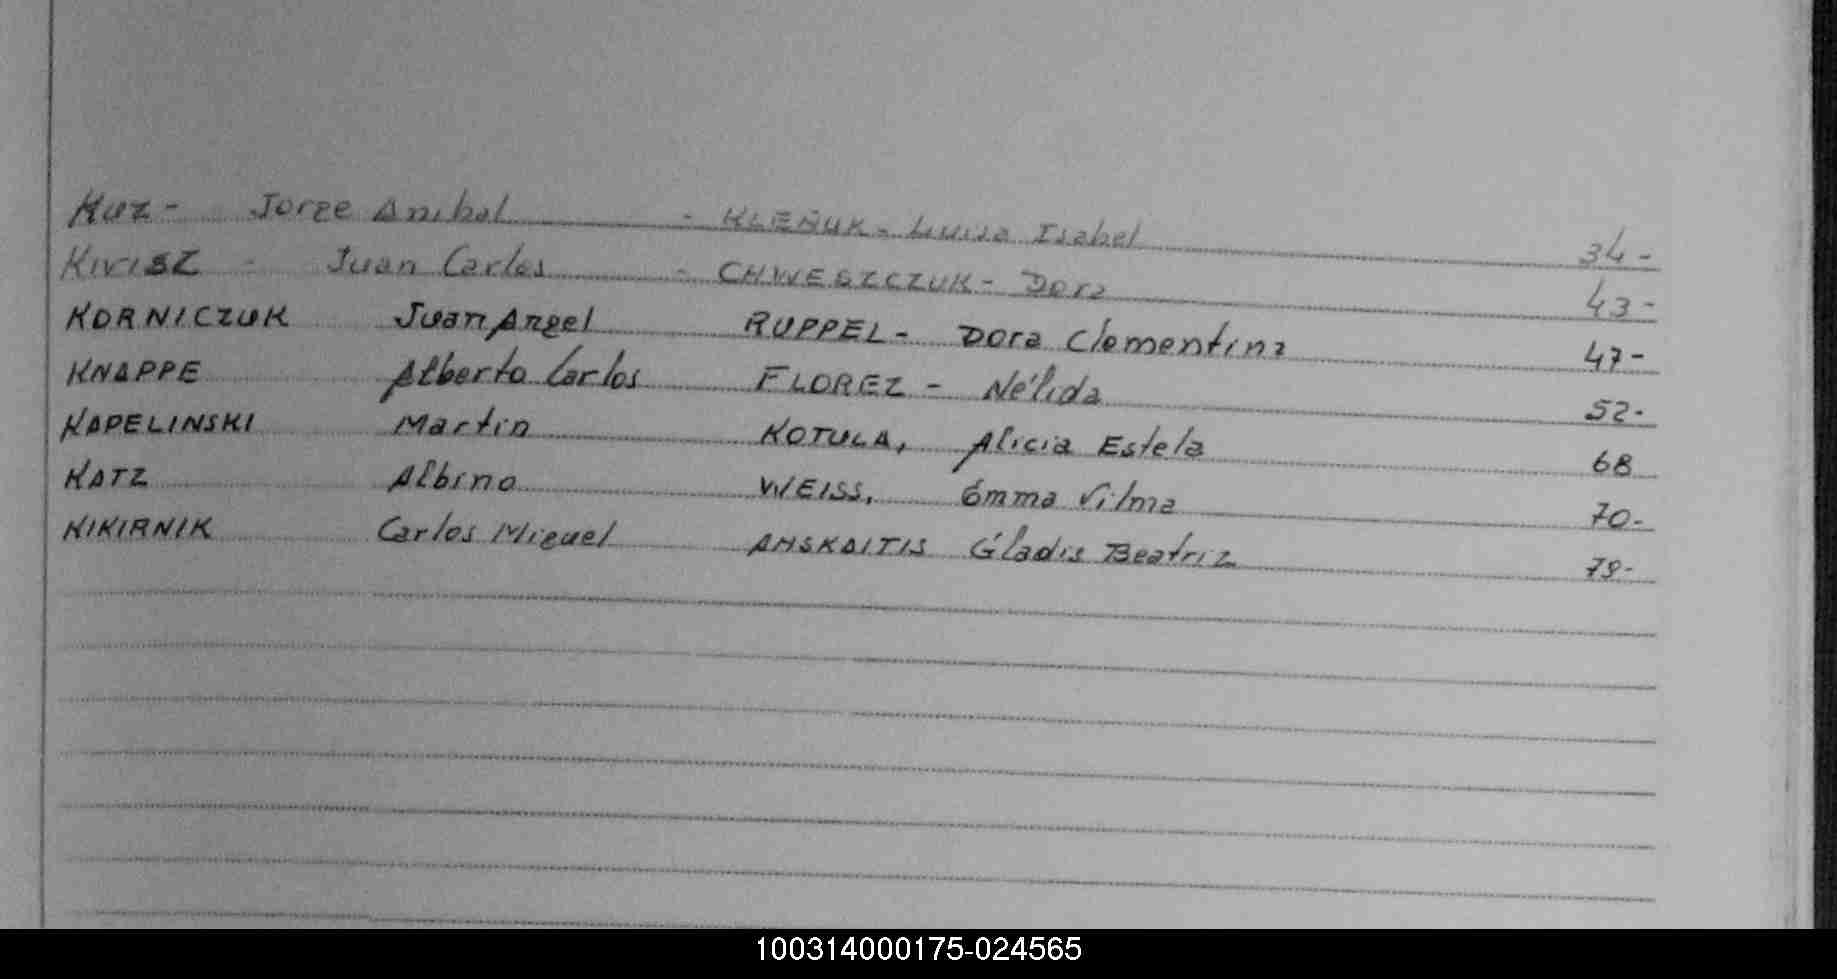 KUZ - Jorge Anibal - KLEÑUK - Luisa Isabel 34-
KIVISZ - Juan Carlos - CHWESZCZUK - Dora 43-
KORNICZUK Juan Angel RUPPEL - Dora Clementina 47-
KNAPPE Alberto Carlos FLOREZ - Nélida 52-
KAPELINSKI Martin KOTULA, Alicia Estela 68
KATZ Albino WEISS, Emma Vilma 70-
KIKIRNIK Carlos Miguel AMSKAITIS Gladis Beatriz 79-
100314000175-024565